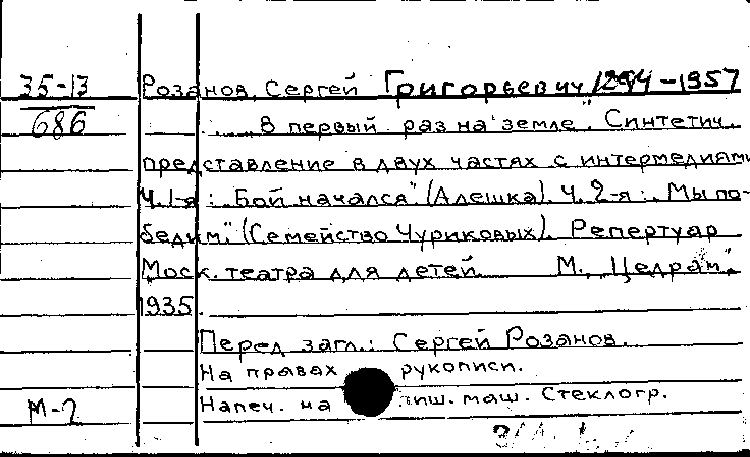 35-13
686
Розанов, Сергей Григорьевич 1894-1957
„В первый раз на земле". Синтетич.
представление в двух частях с интермедиями
Ч.1-я: „Бой начался" (Алешка). Ч.2-я: „Мы по-
бедим". (Семейство Чуриковых). Репертуар
Моск. театра для детей. М., „Цедрам",
1935.
Перед загл.: Сергей Розанов.
На правах рукописи.
Напеч. на пиш. маш. Стеклогр.
М-2